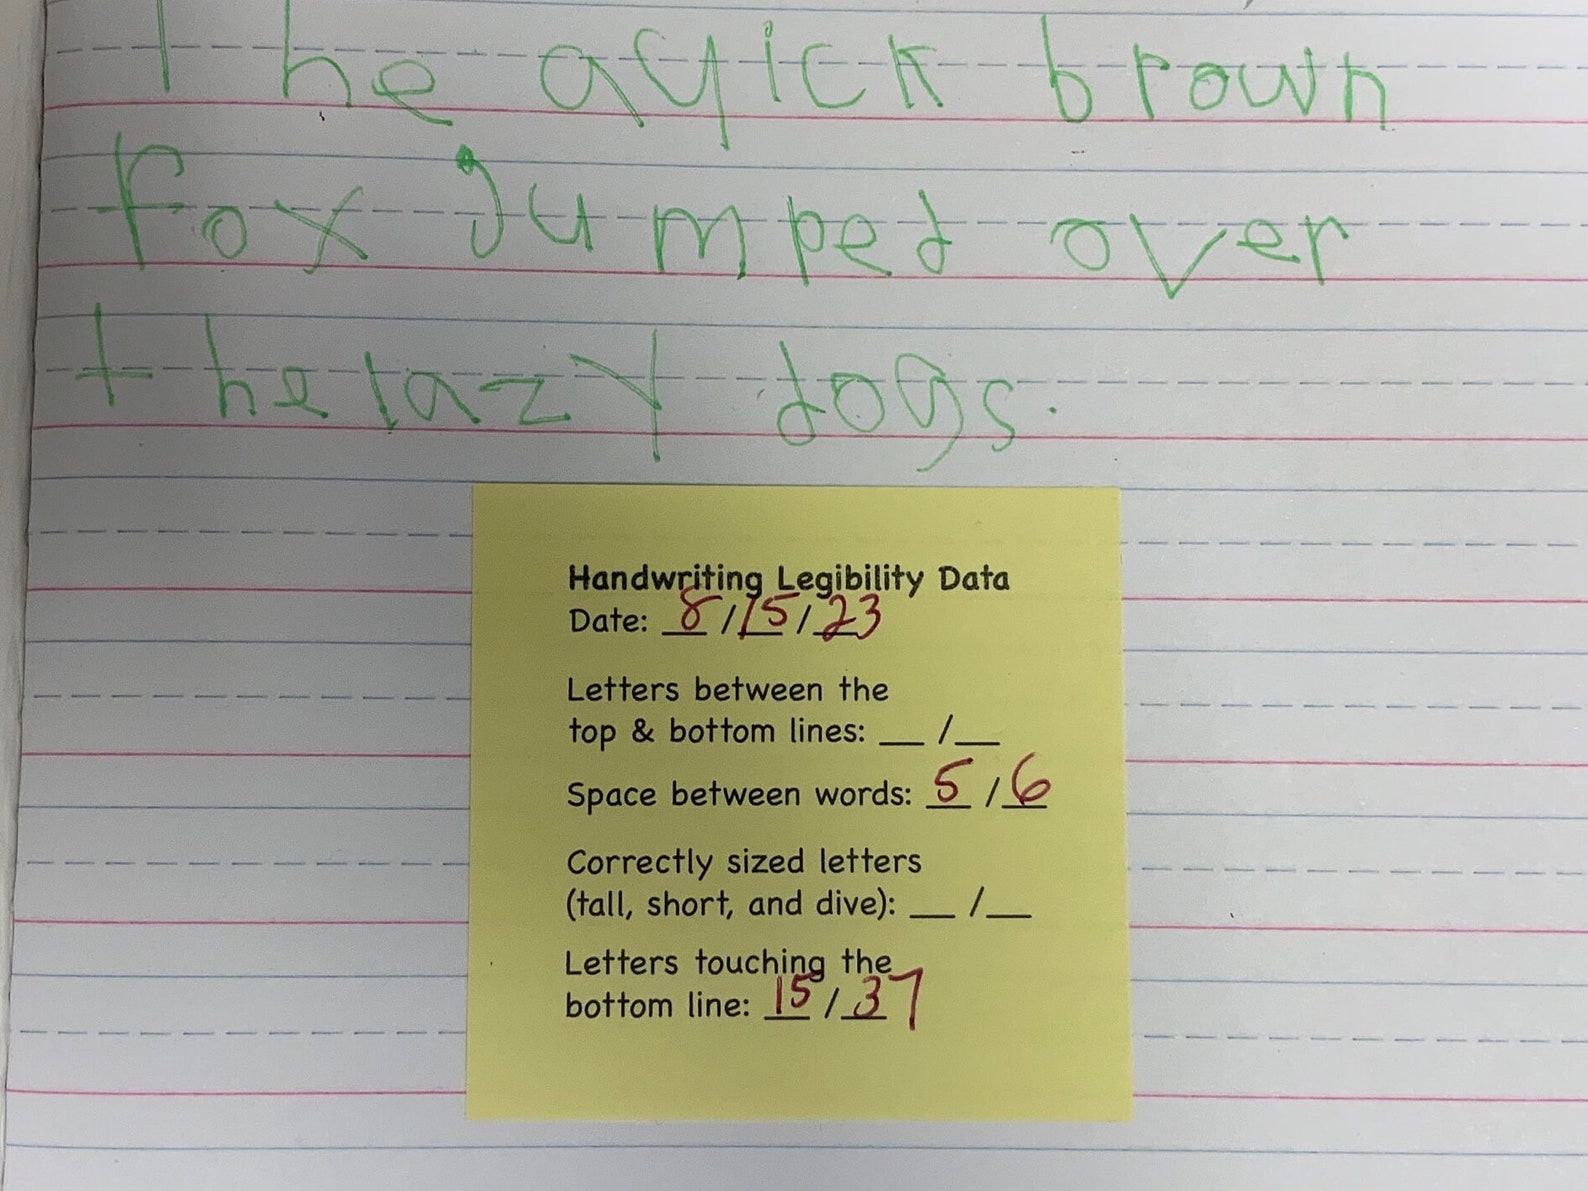 The quick brown
fox jumped over
the lazy dogs.
Handwriting Legibility Data
Date: 8/15/23
Letters between the
top & bottom lines: __/__
Space between words: 5/6
Correctly sized letters
(tall, short, and dive): __/__
Letters touching the
bottom line: 15/37